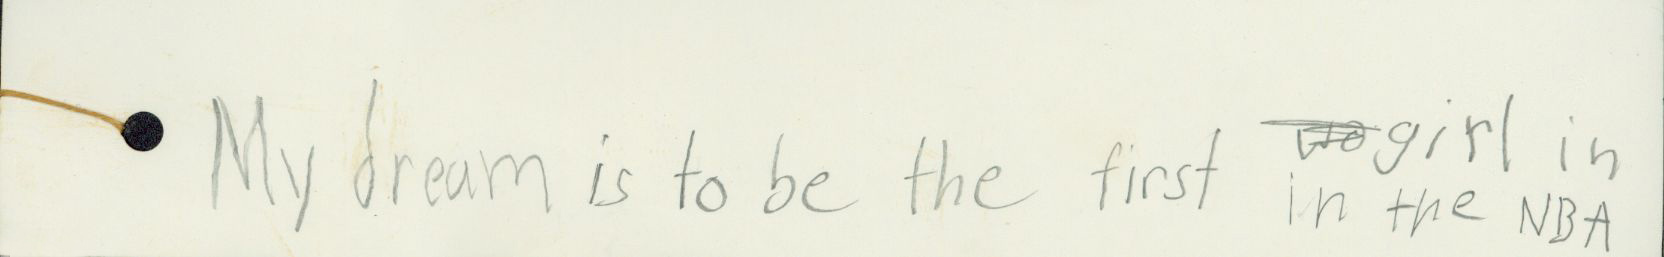 My dream is to be the first girl in
in the NBA